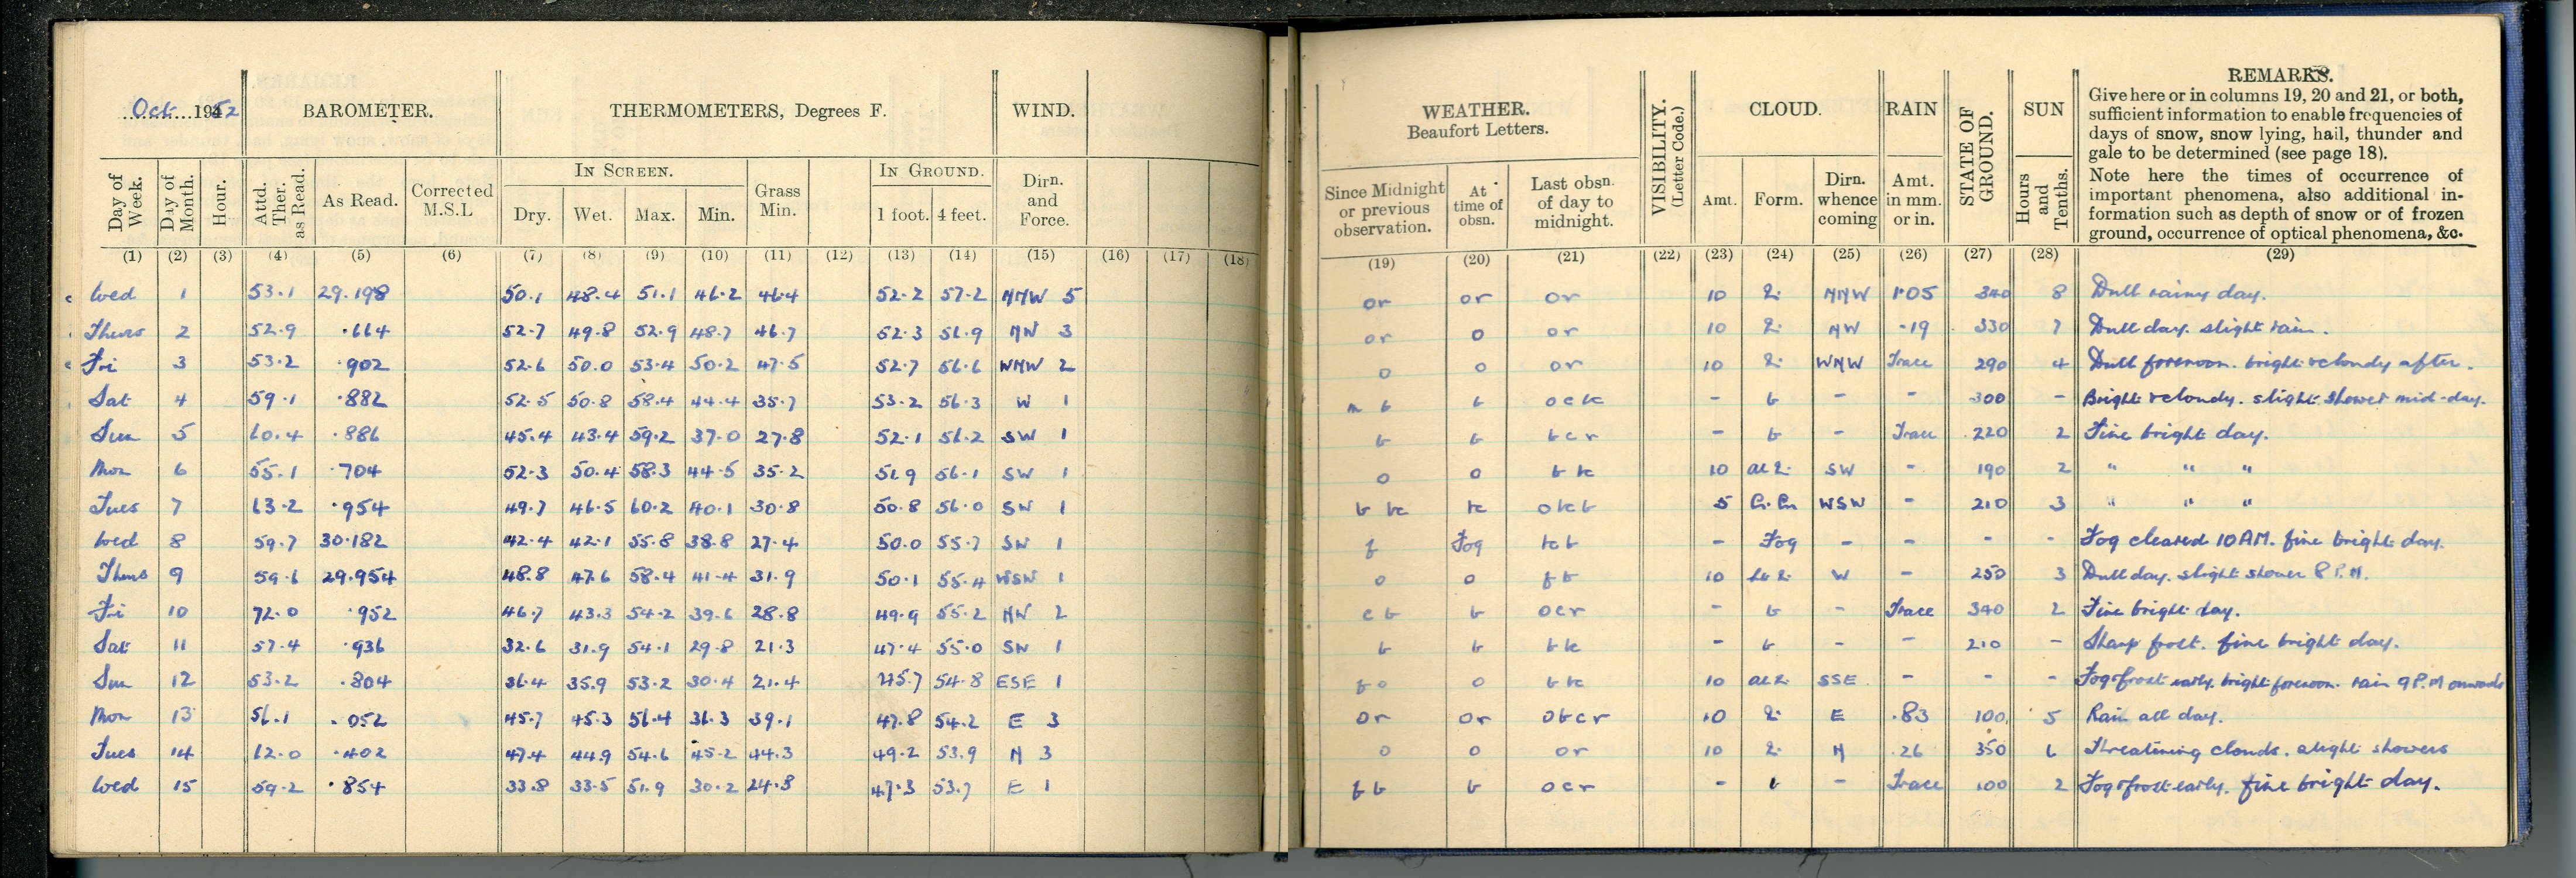 Oct. 1952 BAROMETER. THERMOMETERS, Degrees F. WIND. WEATHER. Beaufort Letters. VISIBILITY. (Letter Code.) CLOUD. RAIN STATE OF GROUND. SUN REMARKS.
Give here or in columns 19, 20 and 21, or both,
sufficient information to enable frequencies of
days of snow, snow lying, hail, thunder and
gale to be determined (see page 18).
Note here the times of occurrence of
important phenomena, also additional in-
formation such as depth of snow or of frozen
ground, occurrence of optical phenomena, &c.
IN SCREEN. IN GROUND.
Day of Week. Day of Month. Hour. Attd. Ther. as Read. As Read. Corrected M.S.L Dry. Wet. Max. Min. Grass Min. 1 foot. 4 feet. Dirn. and Force. Since Midnight or previous observation. At time of obsn. Last obsn. of day to midnight. Amt. Form. Dirn. whence coming Amt. in mm. or in. Hours and Tenths.
(1) (2) (3) (4) (5) (6) (7) (8) (9) (10) (11) (12) (13) (14) (15) (16) (17) (18) (19) (20) (21) (22) (23) (24) (25) (26) (27) (28) (29)
Wed 1 53.1 29.198 50.1 48.4 51.1 46.2 46.4 52.2 57.2 NNW 5 or or or 10 NNW 1.05 340 8 Dull rainy day.
Thurs 2 52.9 .664 52.7 49.8 52.9 48.7 46.7 52.3 56.9 NW 3 or o or 10 NW .19 330 7 Dull day. slight rain.
Fri 3 53.2 .902 52.6 50.0 53.4 50.2 47.5 52.7 56.6 WNW 2 o o or 10 WNW Trace 290 4 Dull forenoon. bright & cloudy after.
Sat 4 59.1 .882 52.5 50.8 58.4 44.4 35.7 53.2 56.3 W 1 b b - b - - 300 - Bright & cloudy. slight shower mid-day.
Sun 5 60.4 .886 45.4 43.4 59.2 37.0 27.8 52.1 56.2 SW 1 b b bcr - b - Trace 220 2 Fine bright day.
Mon 6 55.1 .704 52.3 50.4 58.3 44.5 35.2 51.9 56.1 SW 1 o o 10 SW - 190 2 " " "
Tues 7 63.2 .954 49.7 46.5 60.2 40.1 30.8 50.8 56.0 SW 1 5 WSW - 210 3 " " "
Wed 8 59.7 30.182 42.4 42.1 55.8 38.8 27.4 50.0 55.7 SW 1 f Fog - Fog - - - - Fog cleared 10 AM. fine bright day.
Thurs 9 59.6 29.954 48.8 47.6 58.4 41.4 31.9 50.1 55.4 WSW 1 o o 10 W - 250 3 Dull day. slight shower 8 P.M.
Fri 10 72.0 .952 46.7 43.3 54.2 39.6 28.8 49.9 55.2 NW 2 cb b ocr - b - Trace 340 2 Fine bright day.
Sat 11 57.4 .936 32.6 31.9 54.1 29.8 21.3 47.4 55.0 SW 1 b b - b - - 210 - Sharp frost. fine bright day.
Sun 12 53.2 .804 36.4 35.9 53.2 30.4 21.4 45.7 54.8 ESE 1 fo o 10 SSE - - - Fog & frost early. bright forenoon. rain 9 P.M onwards
Mon 13 56.1 .052 45.7 45.3 56.4 36.3 39.1 47.8 54.2 E 3 or or obcr 10 E .83 100 5 Rain all day.
Tues 14 62.0 .402 47.4 44.9 54.6 45.2 44.3 49.2 53.9 N 3 o o or 10 N .26 350 6 Threatining clouds. slight showers
Wed 15 59.2 .854 33.8 33.5 51.9 30.2 24.8 47.3 53.7 E 1 fb b ocr - b - Trace 100 2 Fog & frost early. fine bright day.